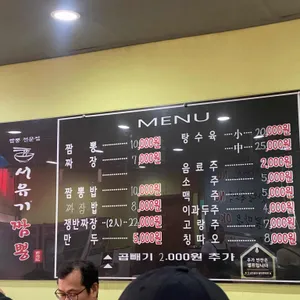 짬뽕 전문점
서유기
짬뽕
MENU
짬 뽕 10,000원
짜 장 7,000원
짬뽕밥 10,000원
짜장밥 8,000원
쟁반짜장 -(2人)- 22,000원
만 두 5,000원
탕수육 小 20,000원
中 25,000원
음료주 2,000원
소 주 5,000원
맥 주 5,000원
이과두주 4,000원
고량주
칭따오 8,000원
▲ 곱빼기 2.000원 추가